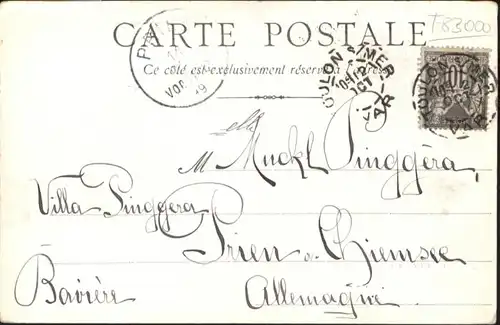 T83000
CARTE POSTALE
Ce côté est exclusivement réservé à l'adresse
TOULON S/MER
21 OCT
VAR
10
M Muckl Pinggéra,
Villa Pinggera
Prien a. Chiemsee
Bavière Allemagne